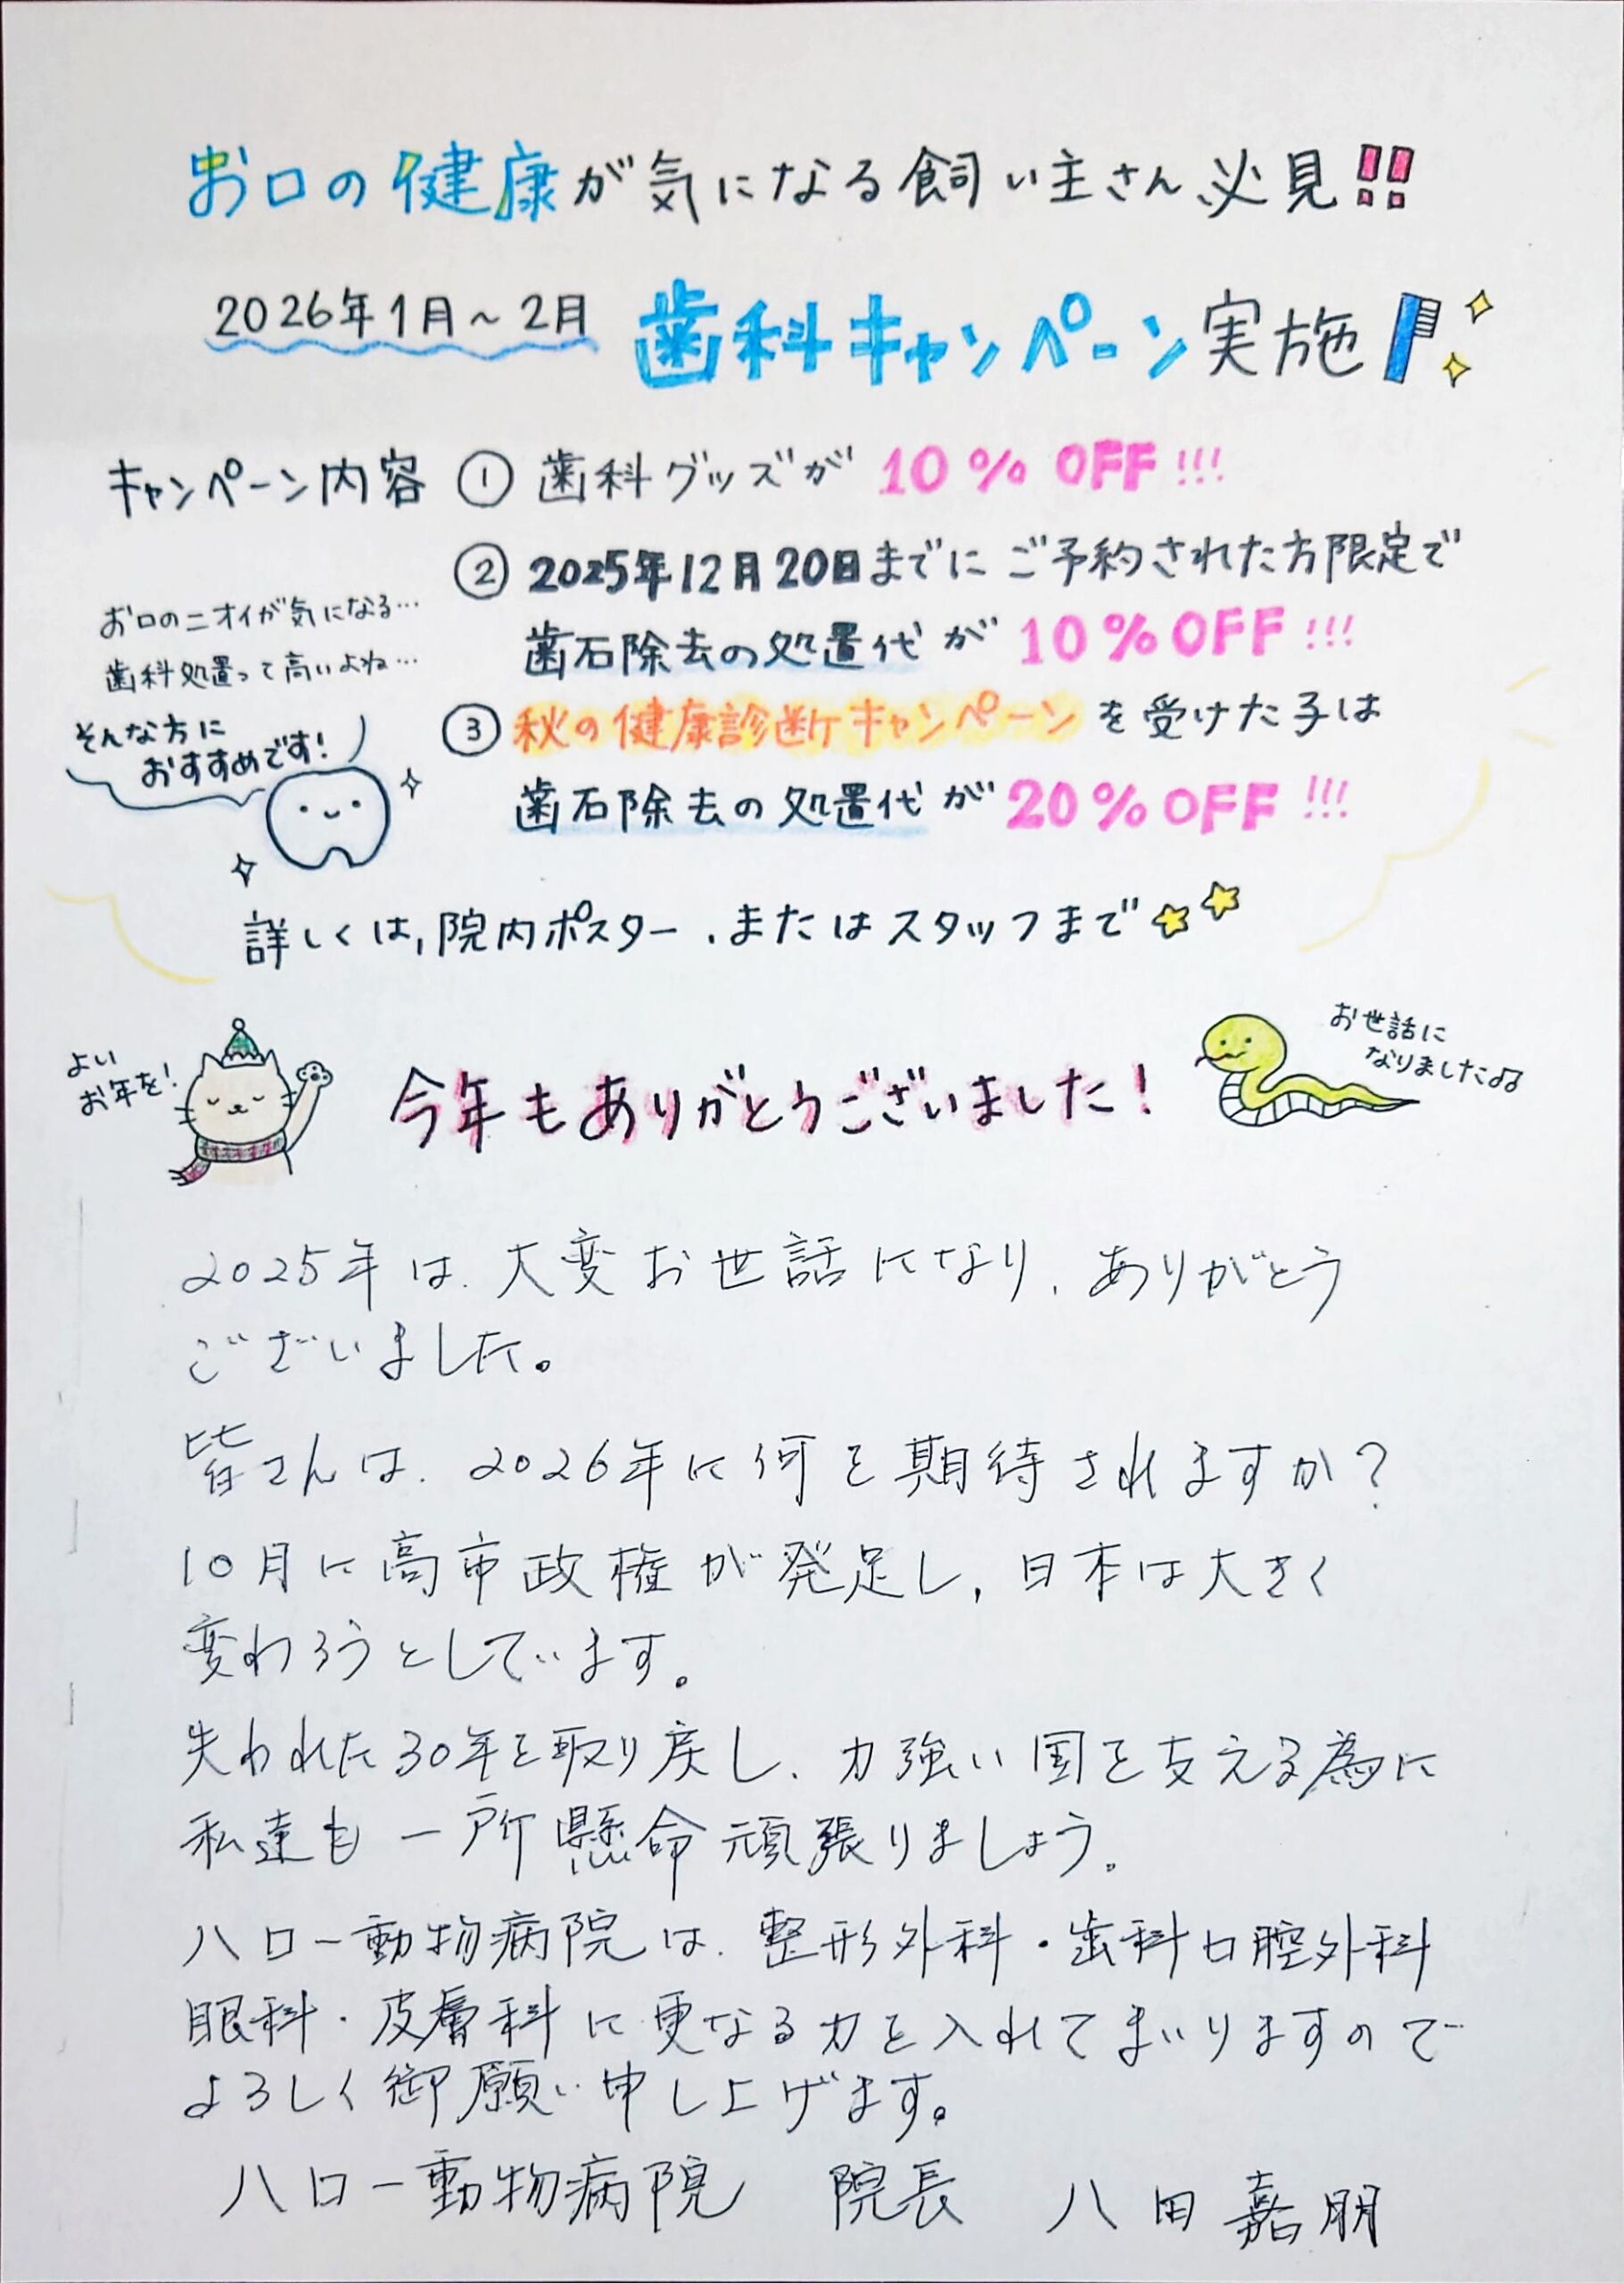 お口の健康が気になる飼い主さん必見!!
2026年1月~2月 歯科キャンペーン実施
キャンペーン内容 ① 歯科グッズが 10% OFF!!!
② 2025年12月20日までにご予約された方限定で
歯石除去の処置代が 10% OFF!!!
③ 秋の健康診断キャンペーンを受けた子は
歯石除去の処置代が 20% OFF!!!
お口のニオイが気になる…
歯科処置って高いよね…
そんな方に
おすすめです!
詳しくは,院内ポスター、またはスタッフまで
よい
お年を!
今年もありがとうございました!
お世話に
なりました♫
2025年は、大変お世話になり、ありがとう
ございました。
皆さんは、2026年に何を期待されますか?
10月に高市政権が発足し,日本は大きく
変わろうとしています。
失われた30年を取り戻し、力強い国を支える為に
私達も一所懸命頑張りましょう。
ハロー動物病院は、整形外科・歯科口腔外科
眼科・皮膚科に更なる力を入れてまいりますので
よろしく御願い申し上げます。
ハロー動物病院 院長 八田嘉朋